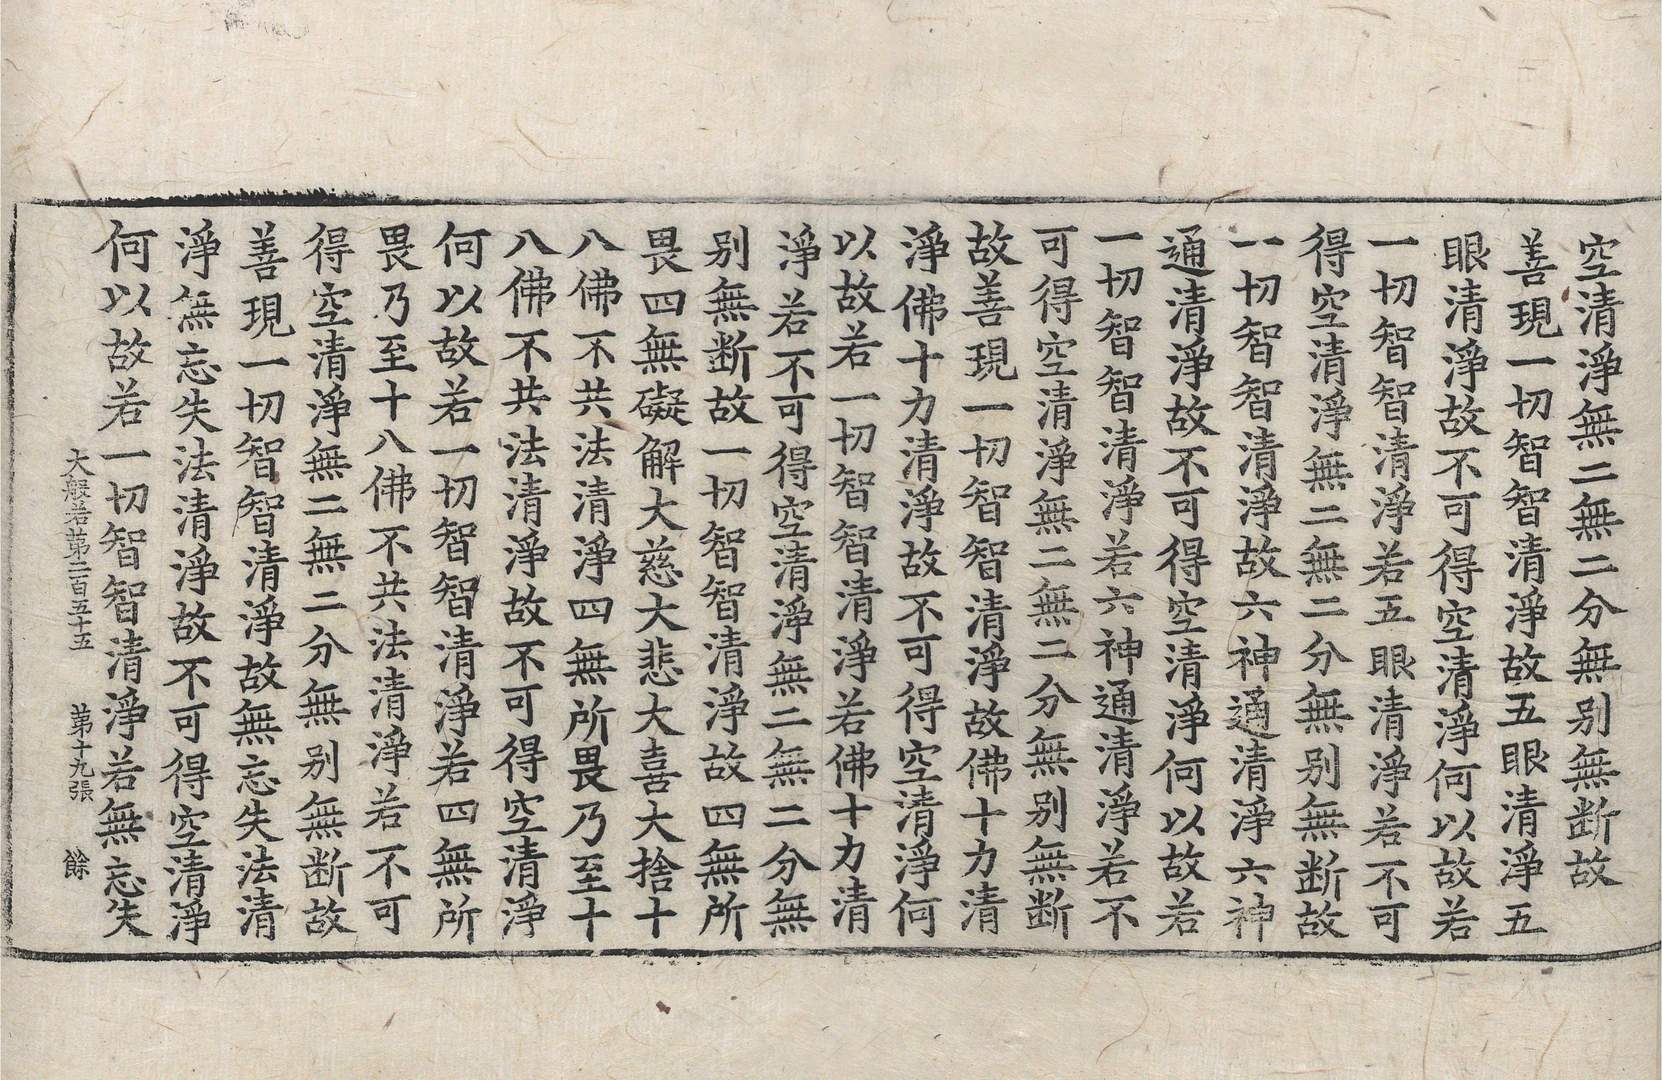 空清淨無二無二分無别無断故
善現一切智智清淨故五眼清淨五
眼清淨故不可得空清淨何以故若
一切智智清淨若五眼清淨若不可
得空清淨無二無二分無别無断故
一切智智清淨故六神通清淨六神
通清淨故不可得空清淨何以故若
一切智智清淨若六神通清淨若不
可得空清淨無二無二分無别無断
故善現一切智智清淨故佛十力清
淨佛十力清淨故不可得空清淨何
以故若一切智智清淨若佛十力清
淨若不可得空清淨無二無二分無
别無断故一切智智清淨故四無所
畏四無礙解大慈大悲大喜大捨十
八佛不共法清淨四無所畏乃至十
八佛不共法清淨故不可得空清淨
何以故若一切智智清淨若四無所
畏乃至十八佛不共法清淨若不可
得空清淨無二無二分無别無断故
善現一切智智清淨故無忘失法清
淨無忘失法清淨故不可得空清淨
何以故若一切智智清淨若無忘失
大般若第二百五十五 第十九張 餘